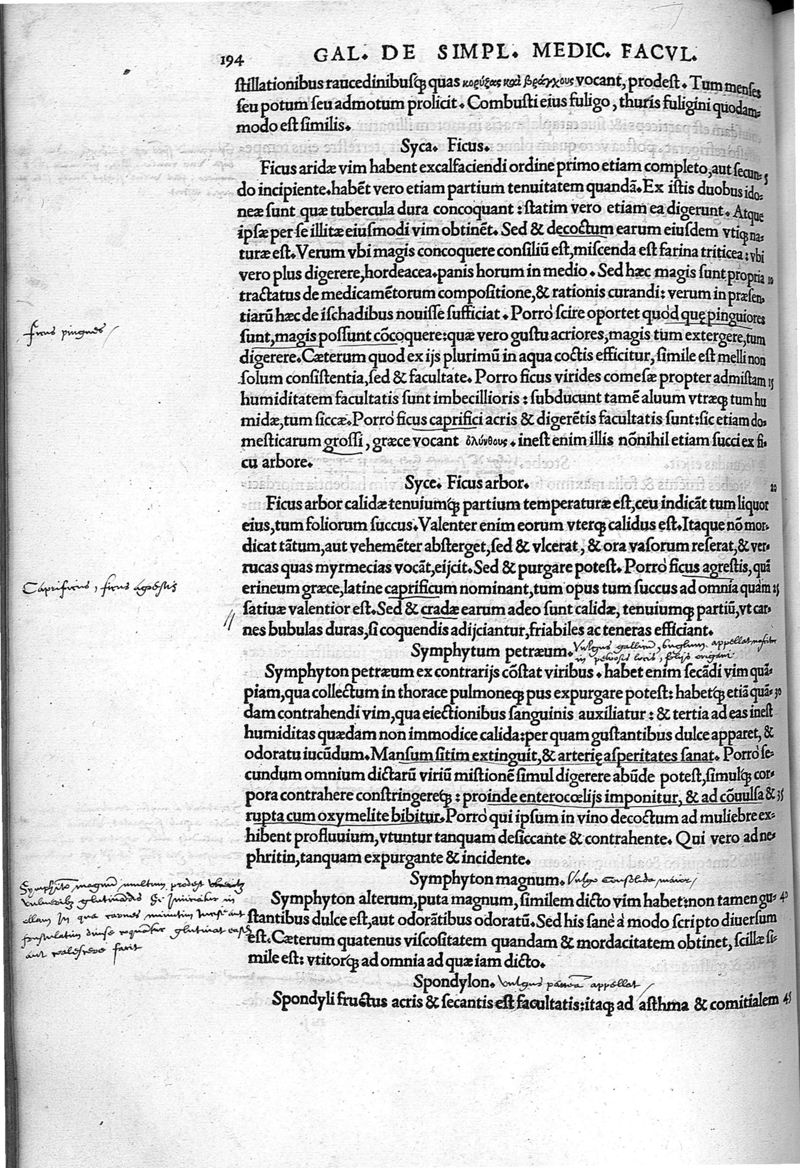 194 GAL. DE SIMPL. MEDIC. FACVL.
stillationibus raucedinibusq; quas κορύζας καὶ βράγχους vocant, prodest. Tum menses
seu potum seu admotum prolicit. Combusti eius fuligo, thuris fuligini quodam-
modo est similis.
Syca. Ficus.
Ficus aridæ vim habent excalfaciendi ordine primo etiam completo, aut secun- 5
do incipiente. habēt vero etiam partium tenuitatem quandā. Ex istis duobus ido-
neæ sunt quæ tubercula dura concoquant: statim vero etiam ea digerunt. Atque
ipsæ per se illitæ eiusmodi vim obtinēt. Sed & decoctum earum eiusdem vtiq; na-
turæ est. Verum vbi magis concoquere consiliū est, miscenda est farina triticea: vbi
vero plus digerere, hordeacea. panis horum in medio. Sed hæc magis sunt propria 10
tractatus de medicamētorum compositione, & rationis curandi: verum in præsen-
tiarū hæc de ischadibus nouisse sufficiat. Porró scire oportet quod quę pinguiores
ficus pingues
sunt, magis possunt cōcoquere: quæ vero gustu acriores, magis tum extergere, tum
digerere. Cæterum quod ex ijs plurimū in aqua coctis efficitur, simile est melli non
solum consistentia, sed & facultate. Porro ficus virides comesæ propter admistam 15
humiditatem facultatis sunt imbecillioris: subducunt tamē aluum vtræq; tum hu
midæ, tum siccæ. Porró ficus caprifici acris & digerētis facultatis sunt: sic etiam do-
mesticarum grossi, græce vocant ὀλύνθους. inest enim illis nōnihil etiam succi ex fi-
cu arbore.
Syce. Ficus arbor. 20
Ficus arbor calidæ tenuiumq; partium temperaturæ est, ceu indicāt tum liquor
eius, tum foliorum succus. Valenter enim eorum vterq; calidus est. Itaque nō mor-
dicat tātum, aut vehemēter absterget, sed & vlcerat, & ora vasorum reserat, & ver-
rucas quas myrmecias vocāt, eijcit. Sed & purgare potest. Porró ficus agrestis, quā
Caprificus, ficus agrestis
erineum græce, latine caprificum nominant, tum opus tum succus ad omnia quàm 25
satiuæ valentior est. Sed & cradæ earum adeo sunt calidæ, tenuiumq; partiū, vt car-
nes bubulas duras, si coquendis adijciantur, friabiles ac teneras efficiant.
Symphytum petræum. Vulgus appellat
in petrosis locis, folijs origani
Symphyton petræum ex contrarijs cōstat viribus. habet enim secādi vim quā-
piam, qua collectum in thorace pulmoneq; pus expurgare potest: habetq; etiā quā- 30
dam contrahendi vim, qua eiectionibus sanguinis auxiliatur: & tertia ad eas inest
humiditas quædam non immodice calida: per quam gustantibus dulce apparet, &
odoratu iucūdum. Mansum sitim extinguit, & arterię asperitates sanat. Porró se-
cundum omnium dictarū viriū mistionē simul digerere abūde potest, simulq; cor-
pora contrahere constringereq;: proinde enterocœlijs imponitur, & ad cōuulsa & 35
rupta cum oxymelite bibitur. Porró qui ipsum in vino decoctum ad muliebre ex-
hibent profluuium, vtuntur tanquam desiccante & contrahente. Qui vero ad ne-
phritin, tanquam expurgante & incidente.
Symphyton magnum. Vulgo Consolida maior
Symphyton alterum, puta magnum, similem dicto vim habet: non tamen gu- 40
stantibus dulce est, aut odorātibus odoratū. Sed his sanè à modo scripto diuersum
est. Cæterum quatenus viscositatem quandam & mordacitatem obtinet, scillæ si-
mile est: vtitorq; ad omnia ad quæ iam dicto.
Symphito magnū multum prodest
vulneribus
ollam in qua carnes
aut coalescere facit
Spondylon. vulgus appellat
Spondyli fructus acris & secantis est facultatis: itaq; ad asthma & comitialem 45